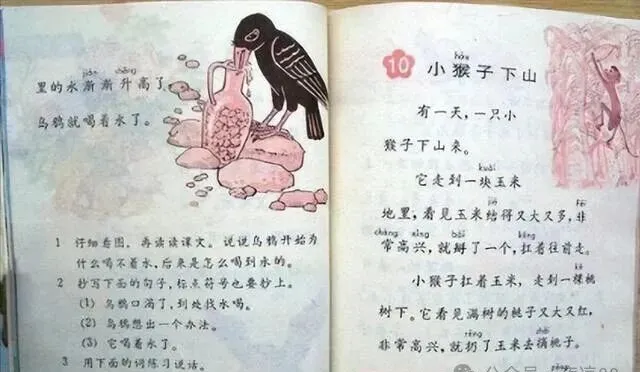 jiàn shēng
里的水渐渐升高了，
乌鸦就喝着水了。
1 仔细看图，再读读课文。说说乌鸦开始为
什么喝不着水，后来是怎么喝到水的。
2 抄写下面的句子，标点符号也要抄上。
(1) 乌鸦口渴了，到处找水喝。
(2) 乌鸦想出一个办法。
(3) 它喝着水了。
3 用下面的词练习说话。
hóu
10 小猴子下山
有一天，一只小
猴子下山来。
kuài
它走到一块玉米
jiē fēi
地里，看见玉米结得又大又多，非
cháng xìng bāi káng
常高兴，就掰了一个，扛着往前走。
kē
小猴子扛着玉米，走到一棵桃
树下。它看见满树的桃子又大又红，
rēng zhāi
非常高兴，就扔了玉米去摘桃子。
公众号